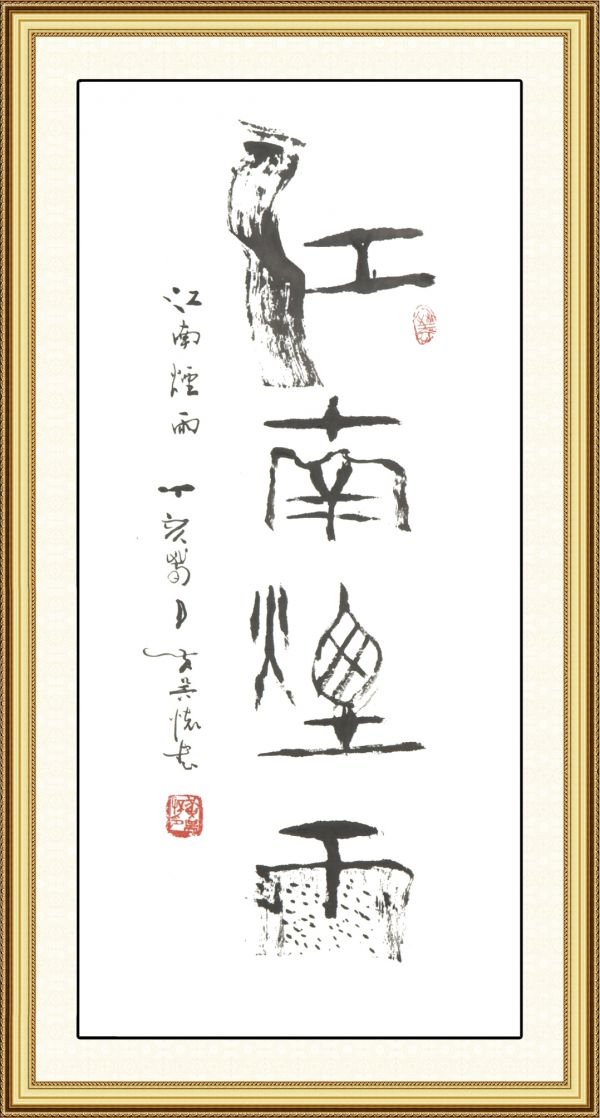 江南煙雨
江南煙雨 丁亥 月 書